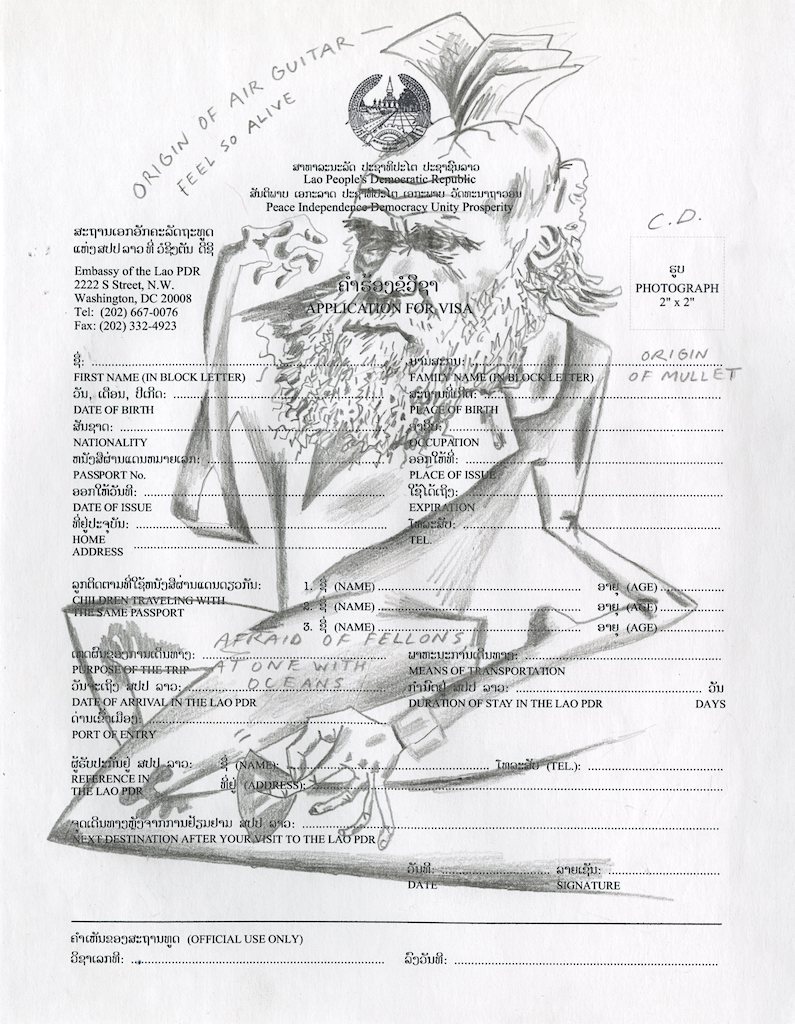 ORIGIN OF AIR GUITAR
FEEL SO ALIVE
ສາທາລະນະລັດ ປະຊາທິປະໄຕ ປະຊາຊົນລາວ
Lao People's Democratic Republic
ສັນຕິພາບ ເອກະລາດ ປະຊາທິປະໄຕ ເອກະພາບ ວັດທະນາຖາວອນ
Peace Independence Democracy Unity Prosperity
ສະຖານເອກອັກຄະລັດຖະທູດ
ແຫ່ງ ສປປ ລາວ ທີ່ ວໍຊິງຕັນ ດີຊີ
Embassy of the Lao PDR
2222 S Street, N.W.
Washington, DC 20008
Tel: (202) 667-0076
Fax: (202) 332-4923
C.D.
ຮູບ
PHOTOGRAPH
2" x 2"
ຄໍາຮ້ອງຂໍວີຊາ
APPLICATION FOR VISA
ORIGIN
OF MULLET
ຊື່: ນາມສະກຸນ:
FIRST NAME (IN BLOCK LETTER) FAMILY NAME (IN BLOCK LETTER)
ວັນ, ເດືອນ, ປີເກີດ: ສະຖານທີ່ເກີດ:
DATE OF BIRTH PLACE OF BIRTH
ສັນຊາດ: ອາຊີບ:
NATIONALITY OCCUPATION
ຫນັງສືຜ່ານແດນຫມາຍເລກ: ອອກໃຫ້ທີ່:
PASSPORT No. PLACE OF ISSUE
ອອກໃຫ້ວັນທີ: ໃຊ້ໄດ້ເຖິງ:
DATE OF ISSUE EXPIRATION
ທີ່ຢູ່ປະຈຸບັນ: ໂທລະສັບ:
HOME TEL.
ADDRESS
ລູກຕິດຕາມທີ່ໃຊ້ຫນັງສືຜ່ານແດນດຽວກັນ: 1. ຊື່ (NAME) ອາຍຸ (AGE)
CHILDREN TRAVELING WITH 2. ຊື່ (NAME) ອາຍຸ (AGE)
THE SAME PASSPORT 3. ຊື່ (NAME) ອາຍຸ (AGE)
AFRAID OF FELLONS
AT ONE WITH
OCEANS
ເຫດຜົນຂອງການເດີນທາງ: ພາຫະນະການເດີນທາງ:
PURPOSE OF THE TRIP MEANS OF TRANSPORTATION
ວັນຈະເຖິງ ສປປ ລາວ: ກໍານົດຢູ່ ສປປ ລາວ: ວັນ
DATE OF ARRIVAL IN THE LAO PDR DURATION OF STAY IN THE LAO PDR DAYS
ດ່ານເຂົ້າເມືອງ:
PORT OF ENTRY
ຜູ້ຮັບປະກັນຢູ່ ສປປ ລາວ: ຊື່ (NAME): ໂທລະສັບ (TEL.):
REFERENCE IN
THE LAO PDR ທີ່ຢູ່ (ADDRESS):
ຈຸດເດີນທາງຫຼັງຈາກການຢ້ຽມຢາມ ສປປ ລາວ:
NEXT DESTINATION AFTER YOUR VISIT TO THE LAO PDR
ວັນທີ: ລາຍເຊັນ:
DATE SIGNATURE
ຄໍາເຫັນຂອງສະຖານທູດ (OFFICIAL USE ONLY)
ວີຊາເລກທີ: ລົງວັນທີ: